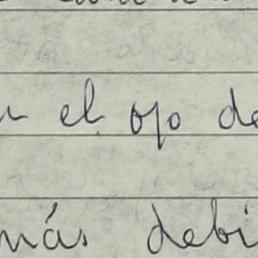 el ojo de
más debi